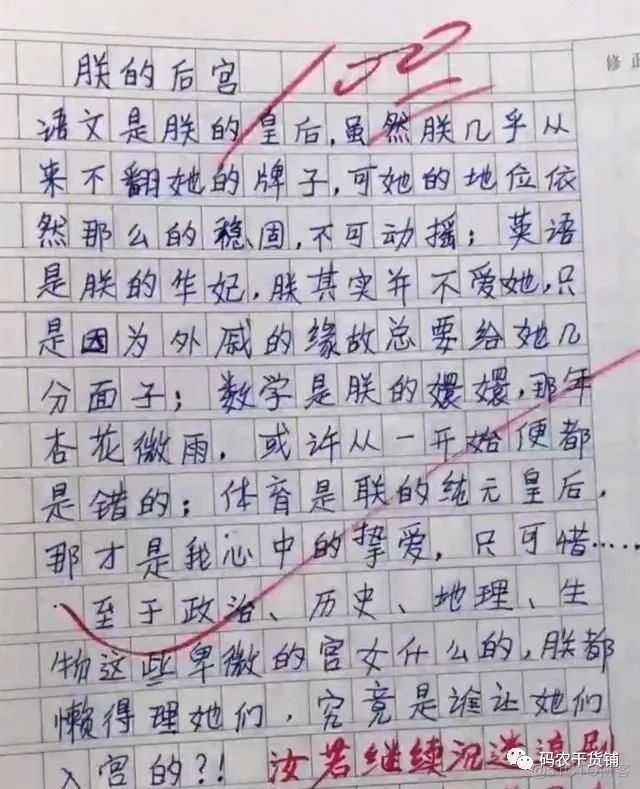 朕的后宫
修正
语文是朕的皇后,虽然朕几乎从
来不翻她的牌子,可她的地位依
然那么的稳固,不可动摇;英语
是朕的华妃,朕其实并不爱她,只
是因为外戚的缘故总要给她几
分面子;数学是朕的嬛嬛,那年
杏花微雨,或许从一开始便都
是错的;体育是联的纯元皇后,
那才是我心中的挚爱,只可惜……
至于政治、历史、地理、生
物这些卑微的宫女什么的,朕都
懒得理她们,究竟是谁让她们
入宫的?!汝若继续沉迷追剧
码农干货铺